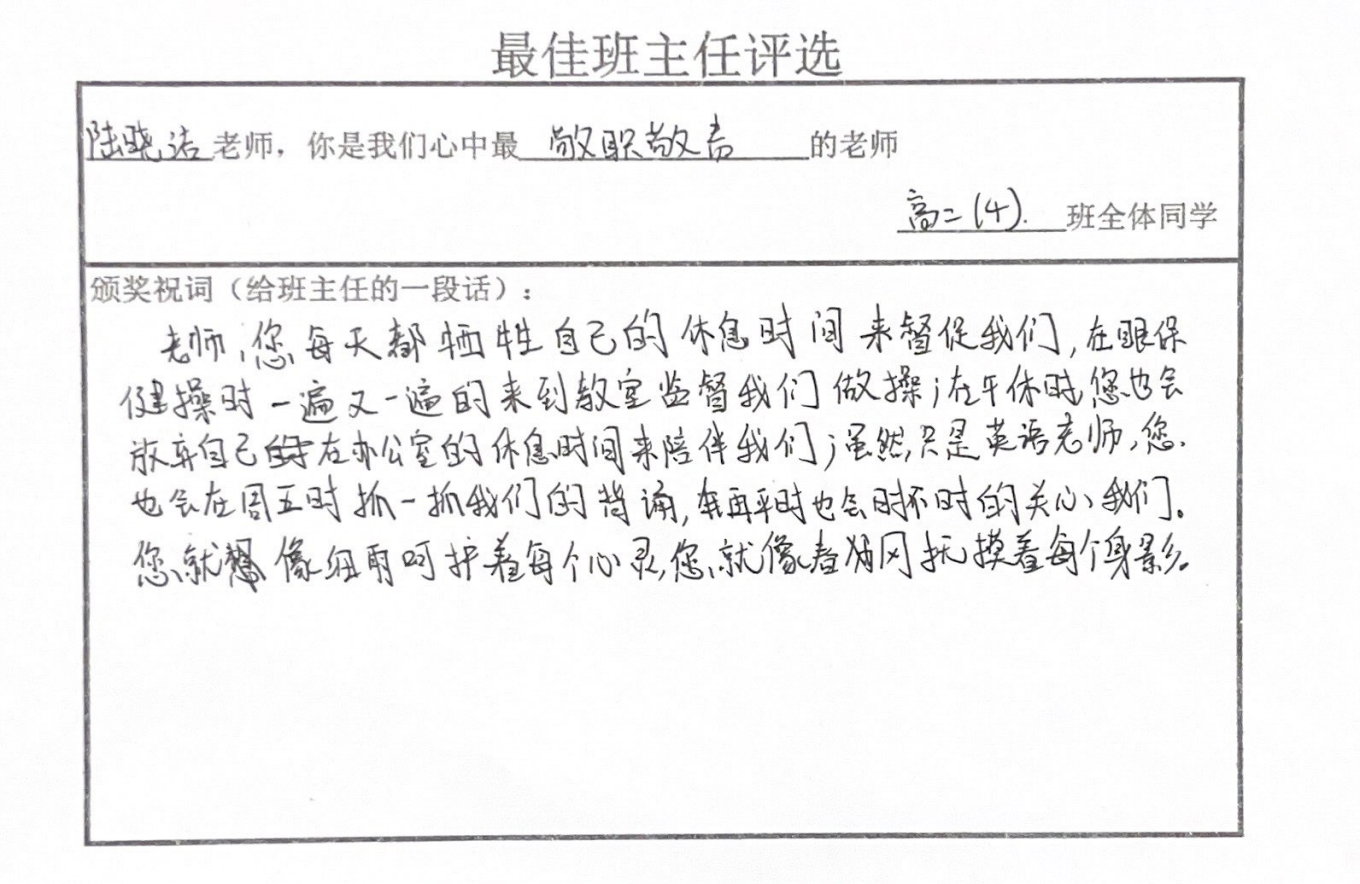 最佳班主任评选
陆晓洁老师，你是我们心中最 敬职敬责 的老师
高二(4). 班全体同学
颁奖祝词（给班主任的一段话）：
老师，您每天都牺牲自己的休息时间来督促我们，在眼保
健操时一遍又一遍的来到教室监督我们做操；在午休时您也会
放弃自己在办公室的休息时间来陪伴我们；虽然只是英语老师，您
也会在周五时抓一抓我们的背诵，在平时也会时不时的关心我们。
您就像细雨呵护着每个心灵，您就像春风抚摸着每个身影。